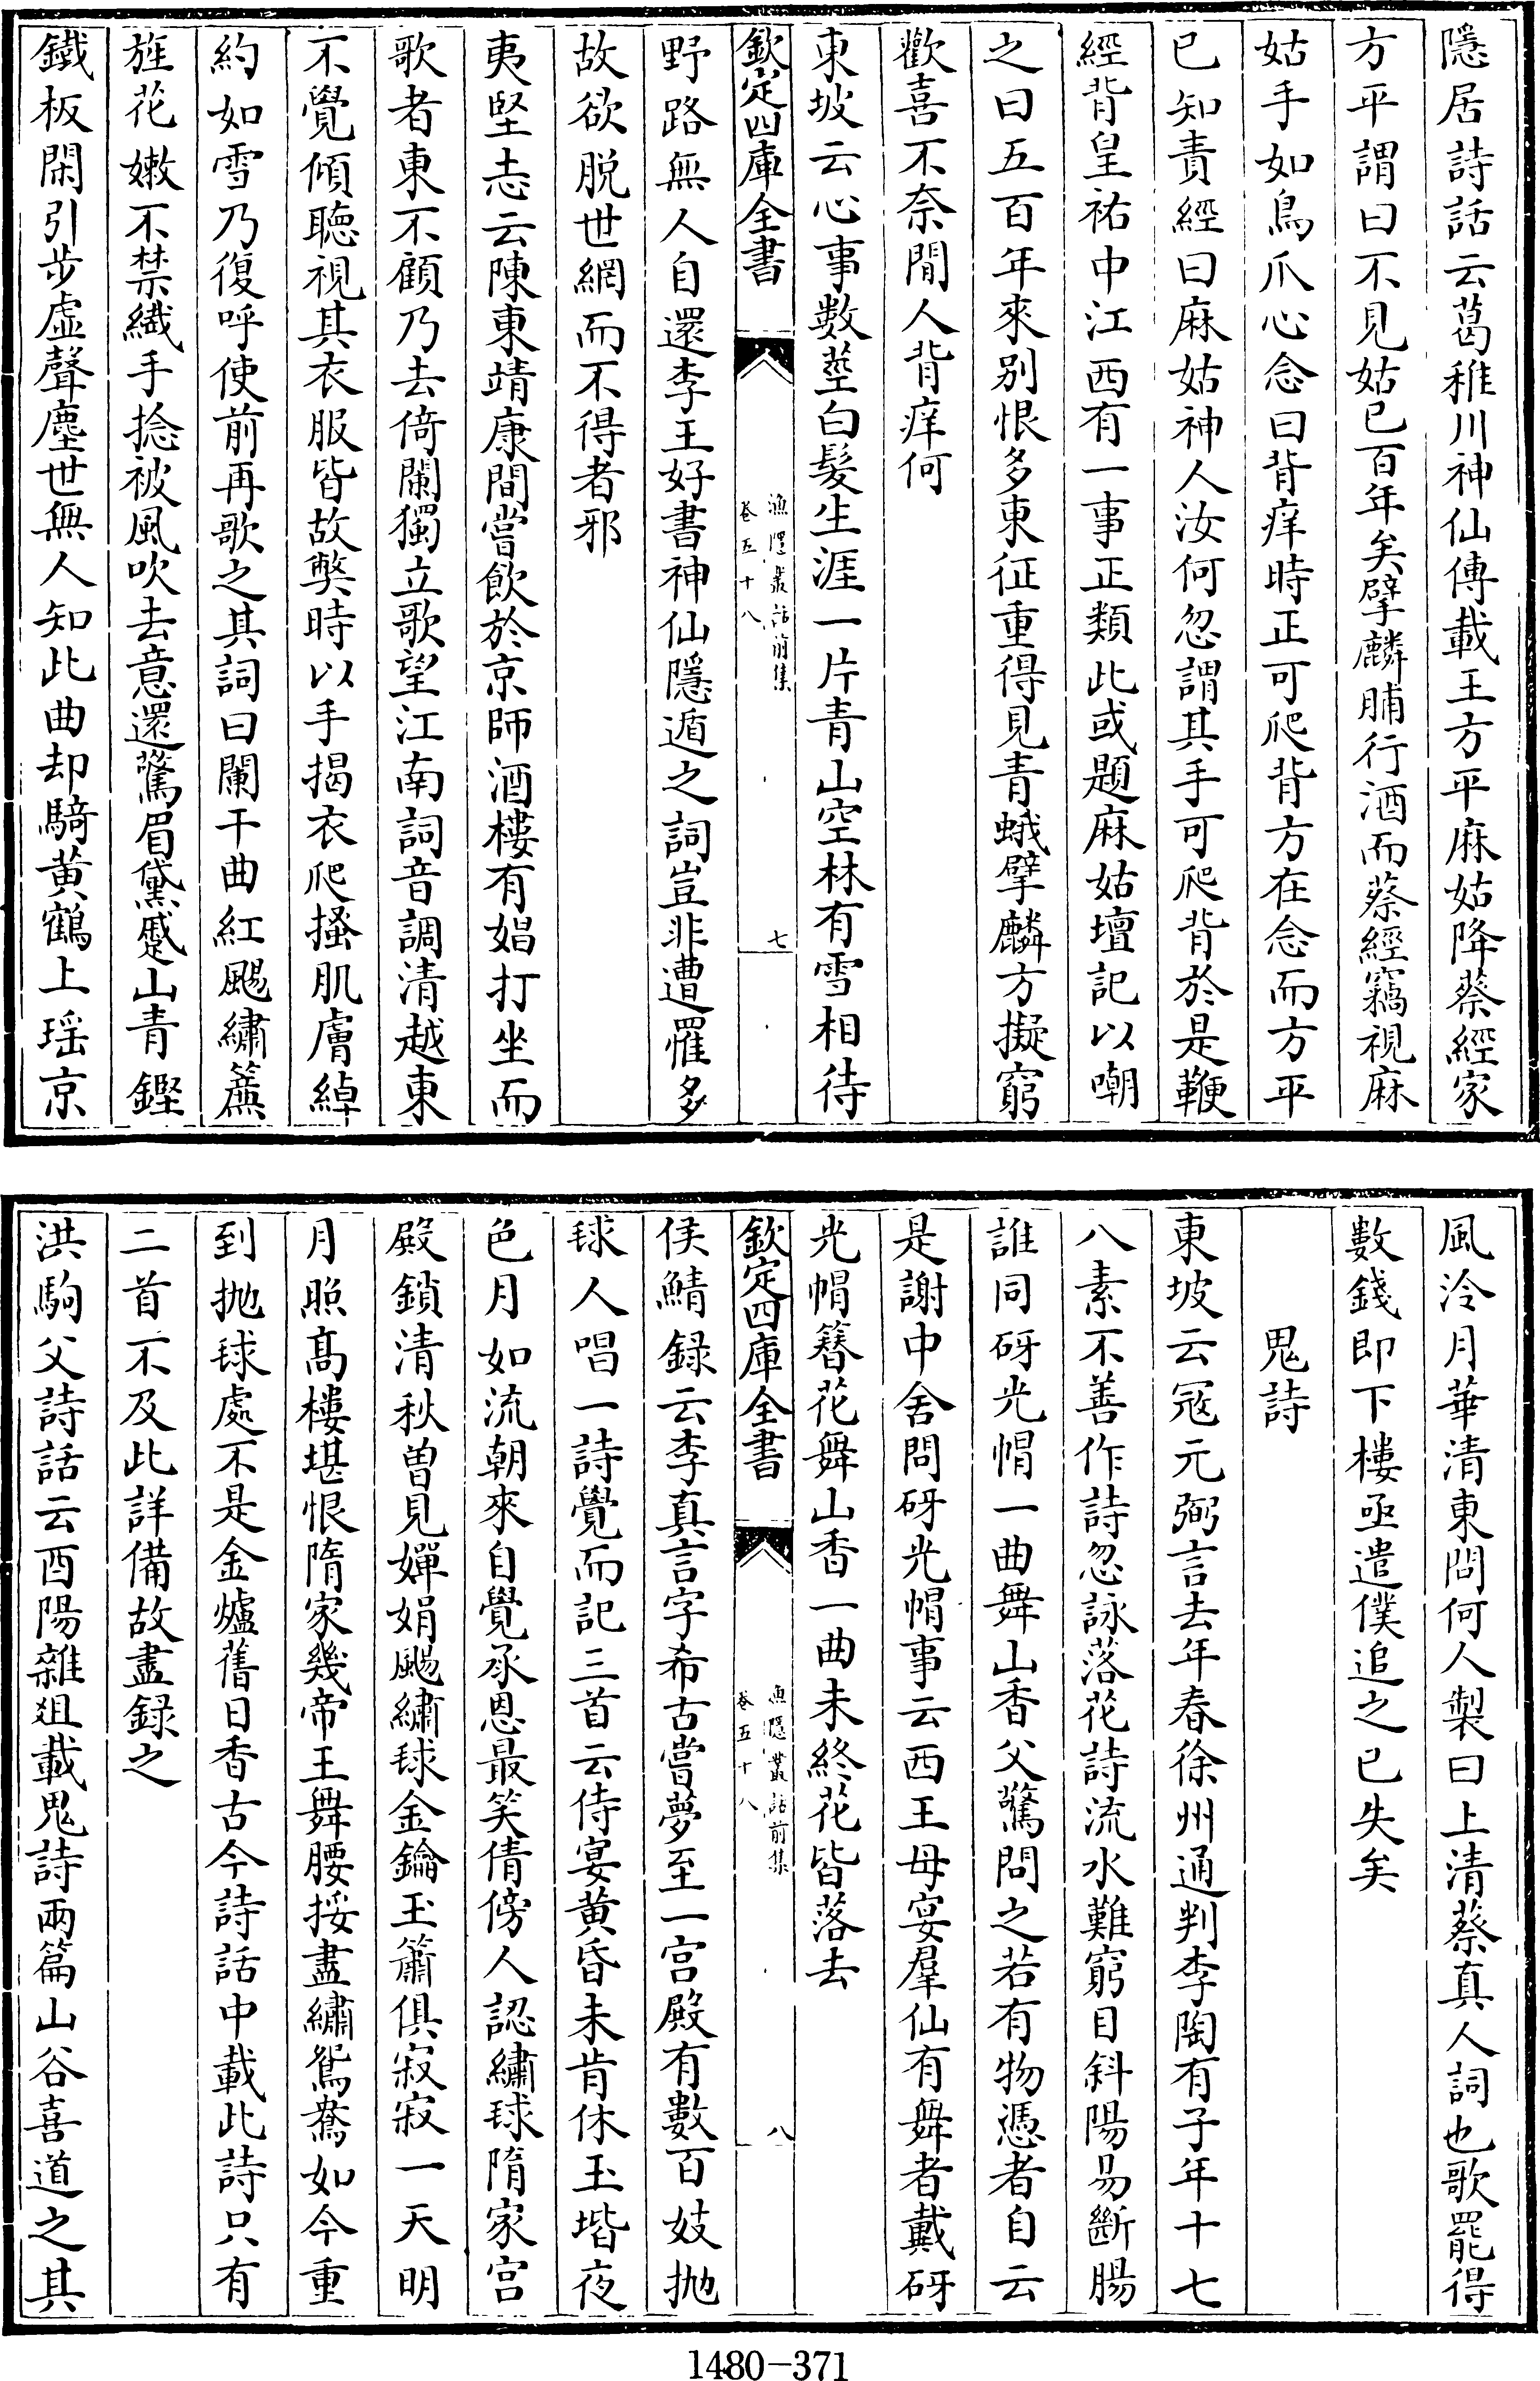 隱居詩話云葛稚川神仙傳載王方平麻姑降蔡經家
方平謂曰不見姑已百年矣擘麟脯行酒而蔡經竊視麻
姑手如鳥爪心念曰背痒時正可爬背方在念而方平
已知責經曰麻姑神人汝何忽謂其手可爬背於是鞭
經背皇祐中江西有一事正類此或題麻姑壇記以嘲
之曰五百年來别恨多東征重得見青蛾擘麟方擬窮
歡喜不奈閒人背痒何
東坡云心事數莖白髮生涯一片青山空林有雪相待
欽定四庫全書
漁隱叢話前集
卷五十八
七
野路無人自還李王好書神仙隱遁之詞豈非遭罹多
故欲脱世網而不得者邪
夷堅志云陳東靖康間嘗飲於京師酒樓有娼打坐而
歌者東不顧乃去倚闌獨立歌望江南詞音調清越東
不覺傾聽視其衣服皆故獘時以手揭衣爬搔肌膚綽
約如雪乃復呼使前再歌之其詞曰闌干曲紅颺繡簾
旌花嫩不禁纎手捻被風吹去意還驚眉黛蹙山青鏗
鐵板閑引步虚聲塵世無人知此曲却騎黄鶴上瑶京
風泠月華清東問何人製曰上清蔡真人詞也歌罷得
數錢即下樓亟遣僕追之已失矣
鬼詩
東坡云冦元弼言去年春徐州通判李陶有子年十七
八素不善作詩忽詠落花詩流水難窮目斜陽易斷腸
誰同砑光帽一曲舞山香父驚問之若有物憑者自云
是謝中舍問砑光帽事云西王母宴羣仙有舞者戴砑
光帽簪花舞山香一曲未終花皆落去
欽定四庫全書
漁隱叢話前集
卷五十八
八
侯鯖録云李真言字希古嘗夢至一宫殿有數百妓抛
毬人唱一詩覺而記三首云侍宴黄昏未肯休玉堦夜
色月如流朝來自覺承恩最笑倩傍人認繡毬隋家宫
殿鎖清秋曽見嬋娟颺繡毬金鑰玉簫俱寂寂一天明
月照髙樓堪恨隋家幾帝王舞腰挼盡繡鴛鴦如今重
到抛毬處不是金爐舊日香古今詩話中載此詩只有
二首不及此詳備故盡録之
洪駒父詩話云酉陽雜俎載鬼詩兩篇山谷喜道之其
1480-371